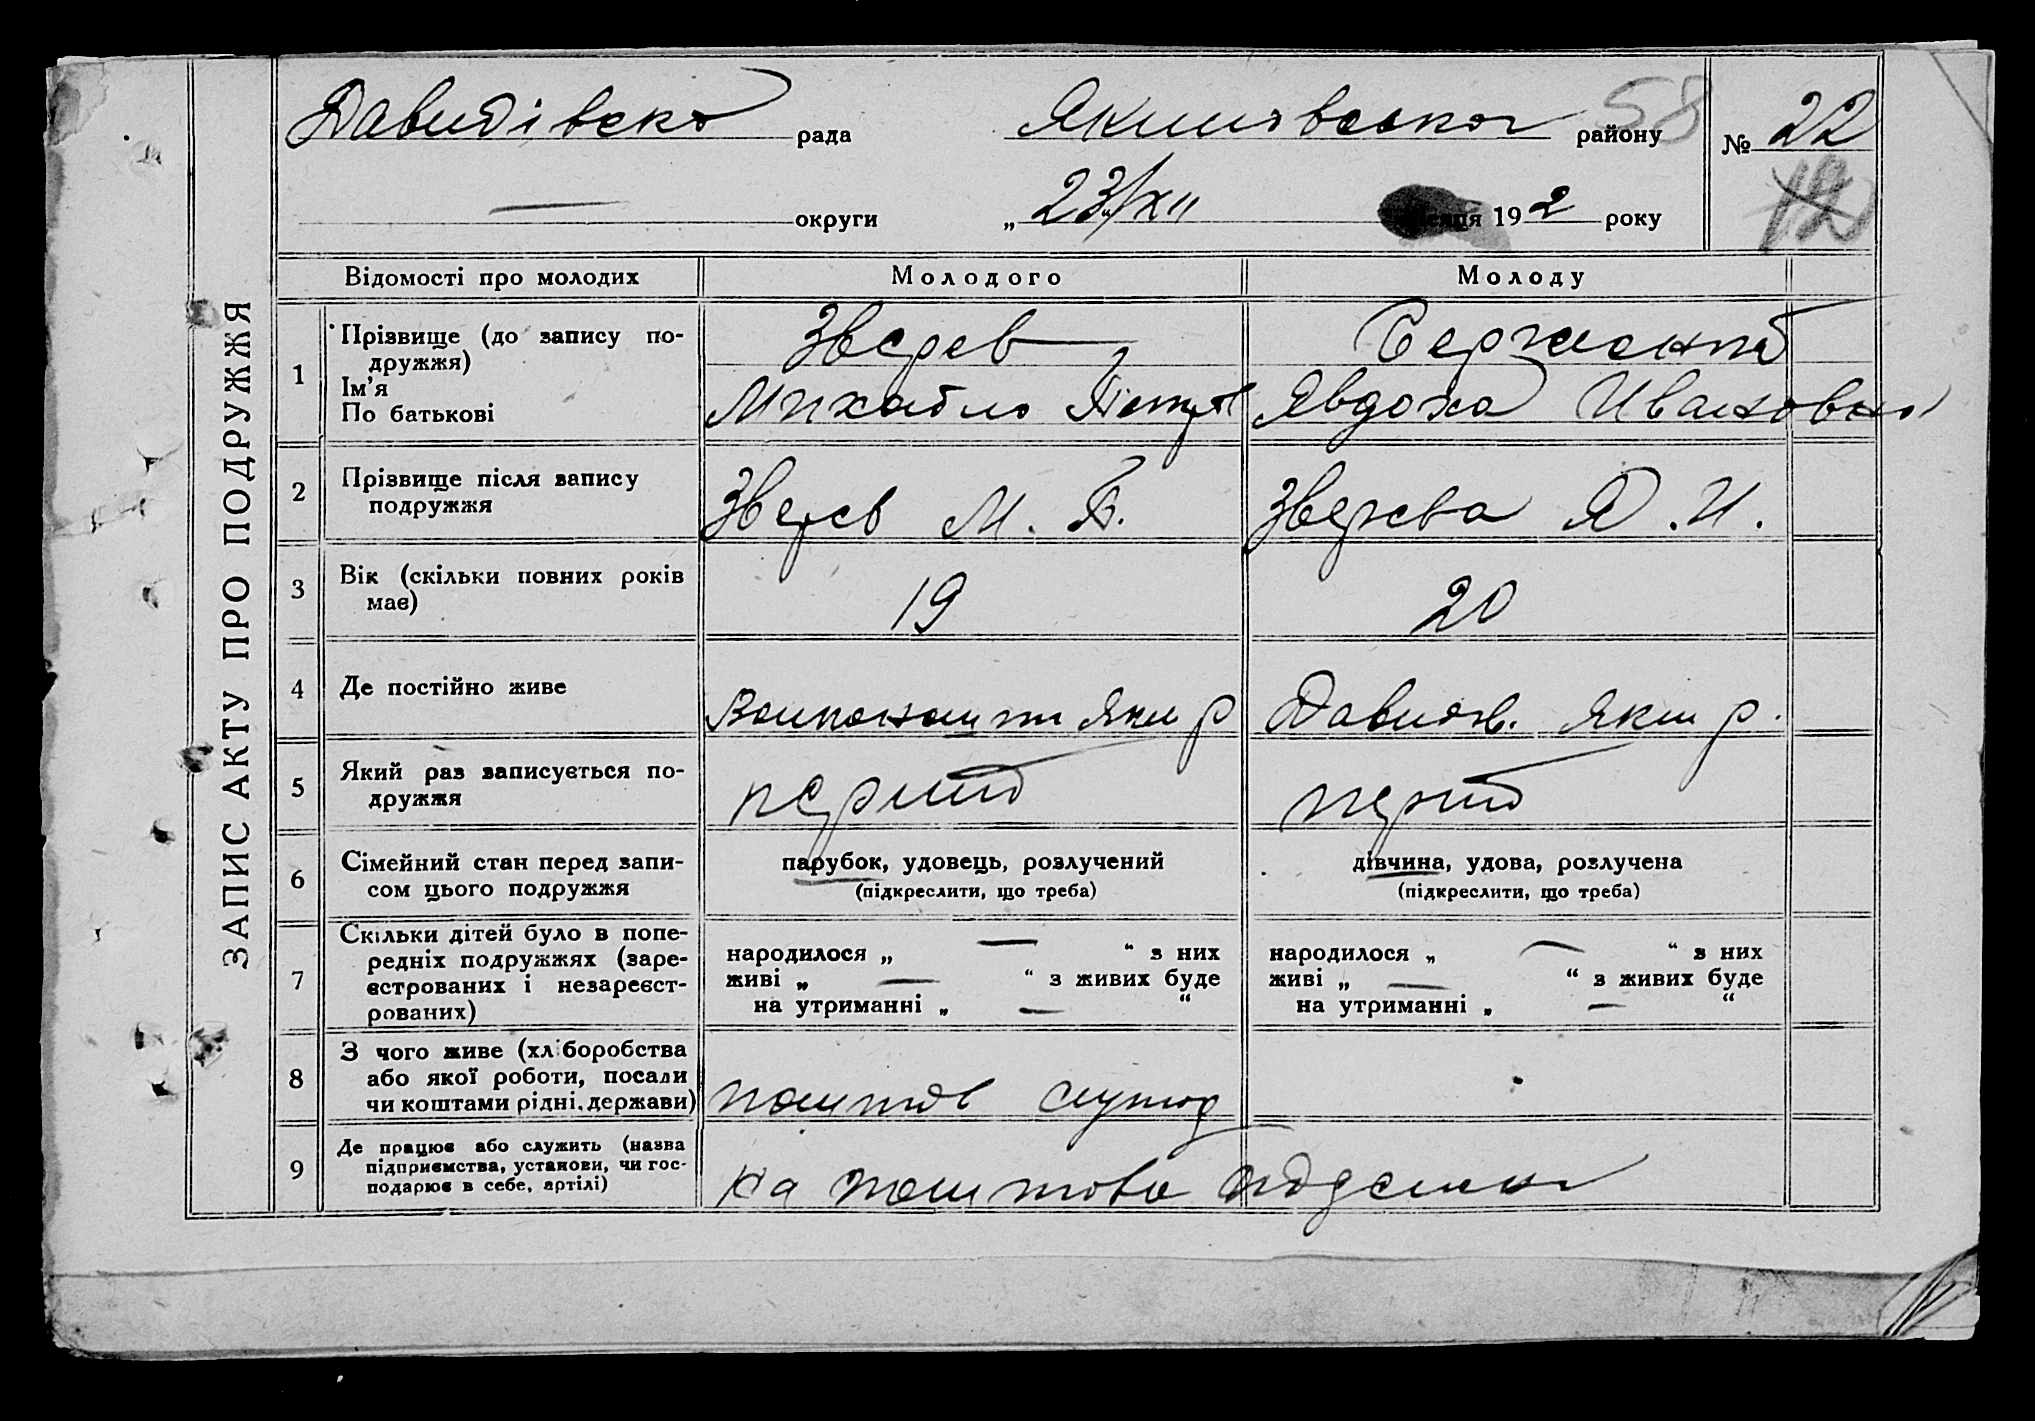 ЗАПИС АКТУ ПРО ПОДРУЖЖЯ
Давидівска рада Якимовського району 58 № 22
округи „ 23/XII 192 року
12
Відомості про молодих Молодого Молоду
1 Прізвище (до запису по-
дружжя)
Ім'я
По батькові
Зверев
Михайло Петр
Сержант
Явдоха Ивановна
2 Прізвище після запису
подружжя
Зверев М. П.
Зверева Я. И.
3 Вік (скільки повних років
має)
19
20
4 Де постійно живе
Яким р
Давидов. Яким р.
5 Який раз записується по-
дружжя
перший
перший
6 Сімейний стан перед запи-
сом цього подружжя
парубок, удовець, розлучений
(підкреслити, що треба)
дівчина, удова, розлучена
(підкреслити, що треба)
7 Скільки дітей було в попе-
редніх подружжях (заре-
єстрованих і незареєст-
рованих)
народилося „ — “ з них
живі „ — “ з живих буде
на утриманні „ — “
народилося „ — “ з них
живі „ — “ з живих буде
на утриманні „ — “
8 З чого живе (хліборобства
або якої роботи, посади
чи коштами рідні, держави)
9 Де працює або служить (назва
підприємства, установи, чи гос-
подарює в себе, артілі)